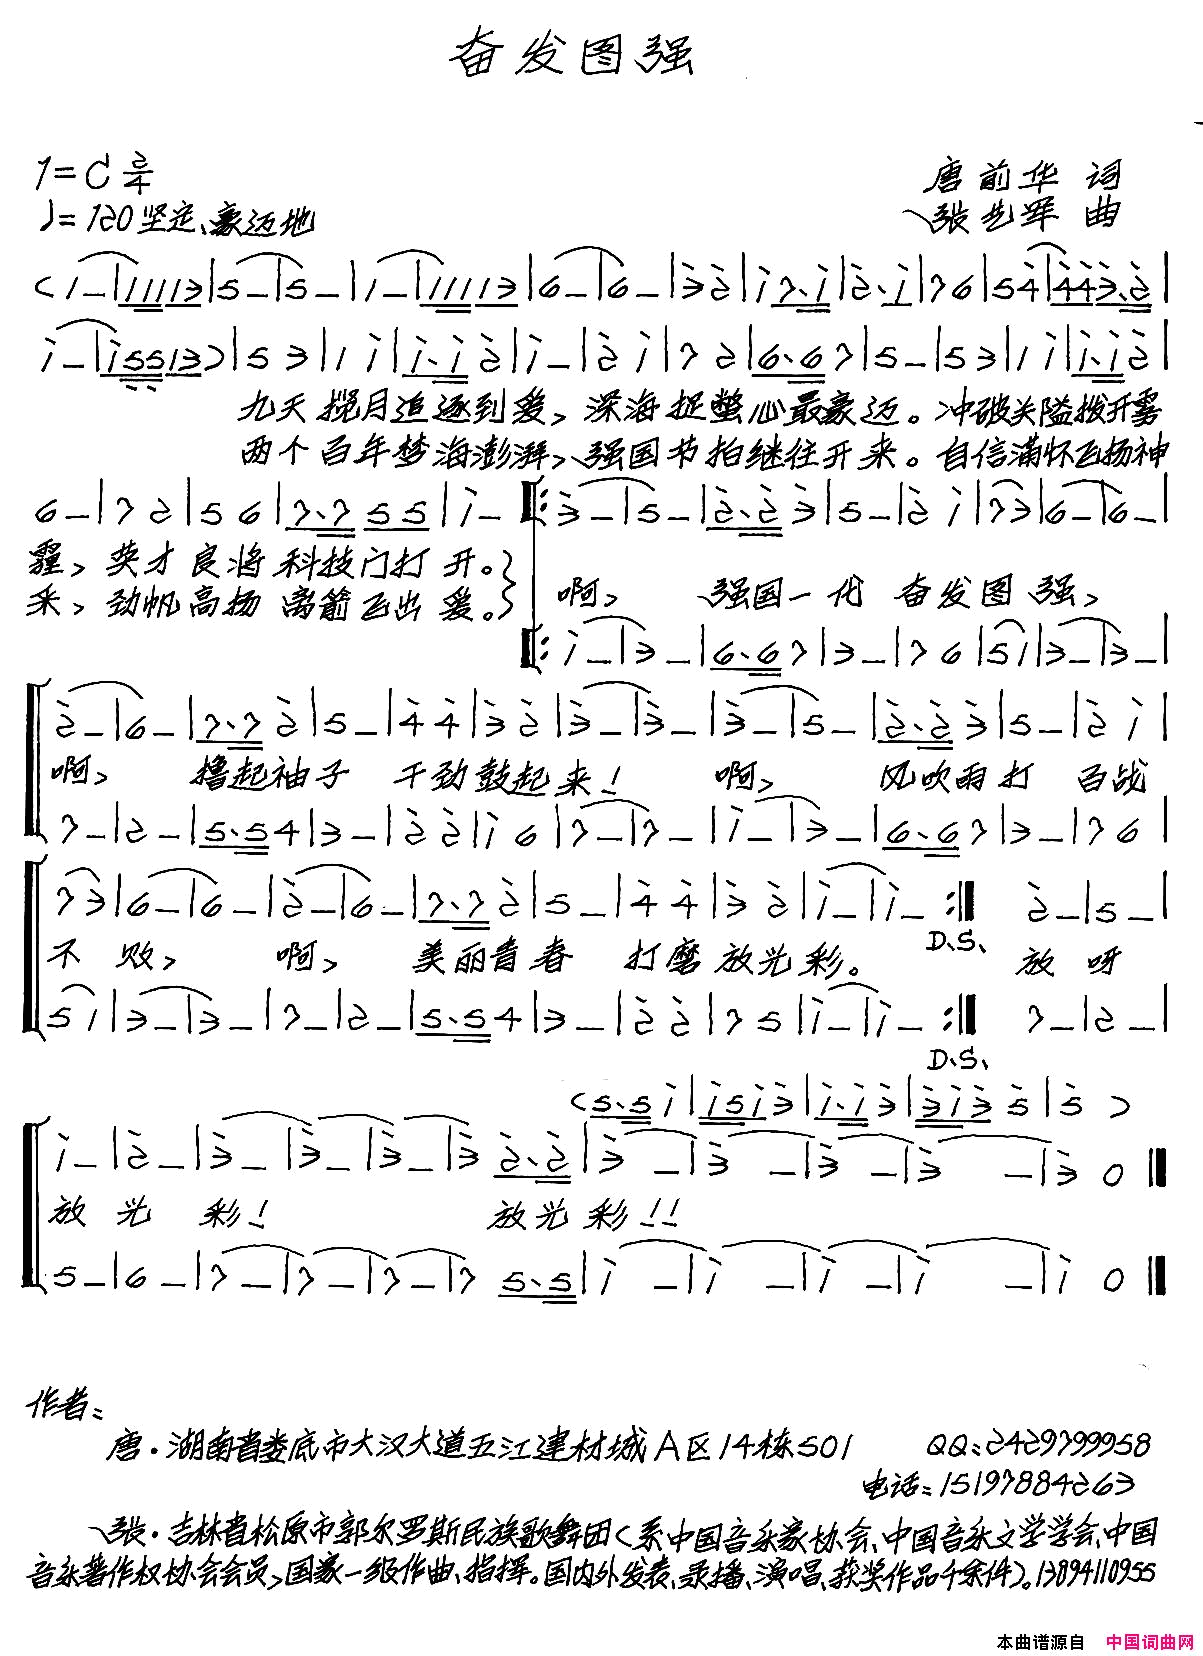 奋发图强
1=C 2/4
♩=120 坚定、豪迈地
唐前华 词
张艺军 曲
九天揽月追逐到爱，深海捉蟹心最豪迈。冲破关隘拨开雾
两个百年梦海澎湃，强国节拍继往开来。自信满怀飞扬神
霾，英才良将科技门打开。
采，劲帆高扬离箭飞出爱。
啊，强国一代奋发图强，
啊，撸起袖子干劲鼓起来！啊，风吹雨打百战
不败，啊，美丽青春打磨放光彩。
D.S.
放呀
D.S.
放光彩！放光彩！！
作者：
唐·湖南省娄底市大汉大道五江建材城A区14栋501 QQ：2429799958
电话：15197884263
张·吉林省松原市郭尔罗斯民族歌舞团（系中国音乐家协会、中国音乐文学学会、中国
音乐著作权协会会员，国家一级作曲、指挥。国内外发表、录播、演唱、获奖作品千余件）。13894110955
本曲谱源自 中国词曲网